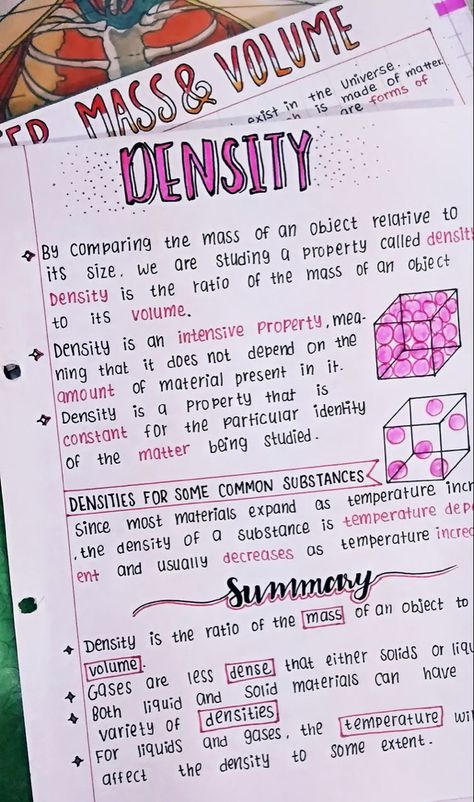 MASS & VOLUME
exist in the universe.
is made of matter.
are forms of
DENSITY
By comparing the mass of an object relative to
its size, we are studing a property called densit
Density is the ratio of the mass of an object
to its volume.
Density is an intensive property, mea-
ning that it does not depend on the
amount of material present in it.
Density is a property that is
constant for the particular identity
of the matter being studied.
DENSITIES FOR SOME COMMON SUBSTANCES
Since most materials expand as temperature incr
, the density of a substance is temperature dep
ent and usually decreases as temperature increa
Summary
Density is the ratio of the mass of an object to
volume.
Gases are less dense that either solids or liqu
Both liquid and solid materials can have
variety of densities
For liquids and gases, the temperature wi
affect the density to some extent.